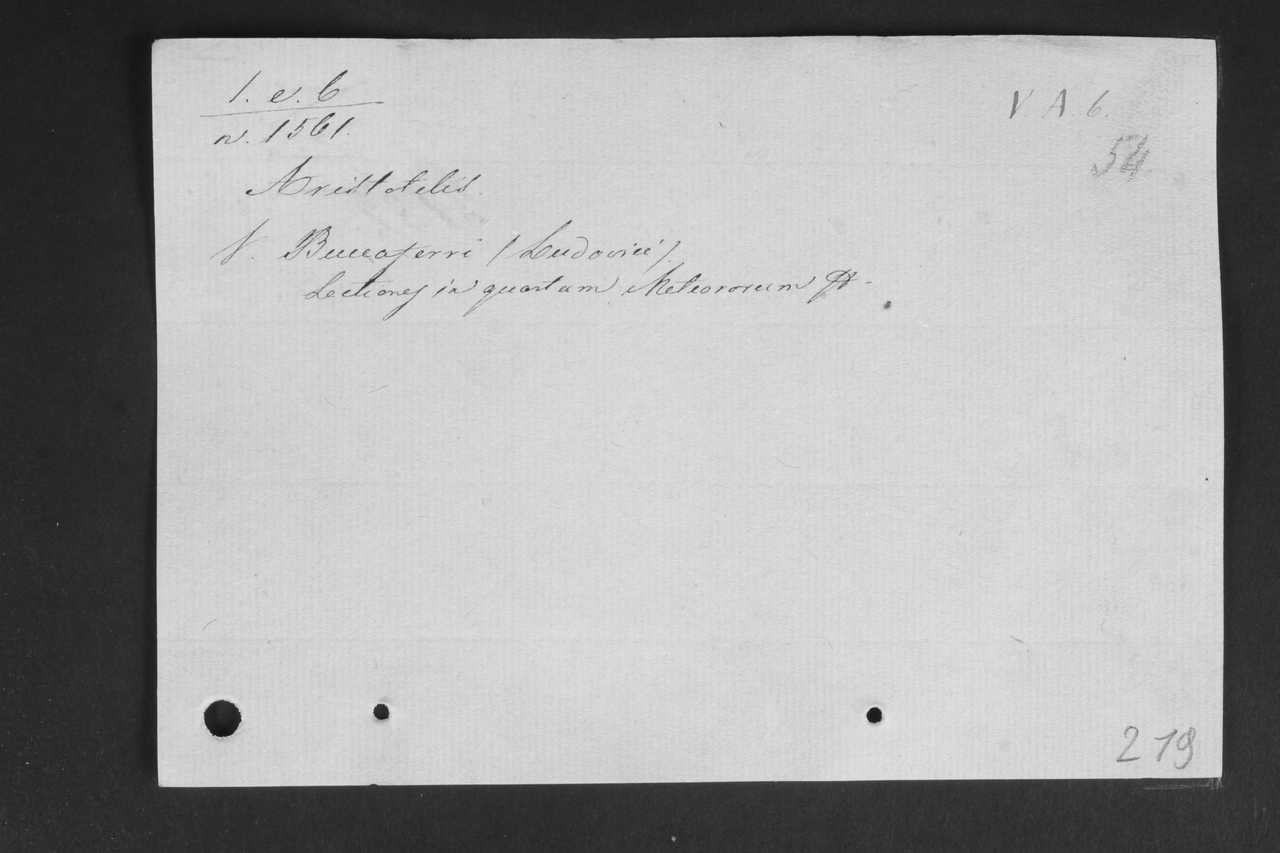 1. e. 6
V. A. 6.
n. 1561.
54
Aristotelis.
V. Buccaferri (Ludovici).
Lectiones in quartum Meteororum
219